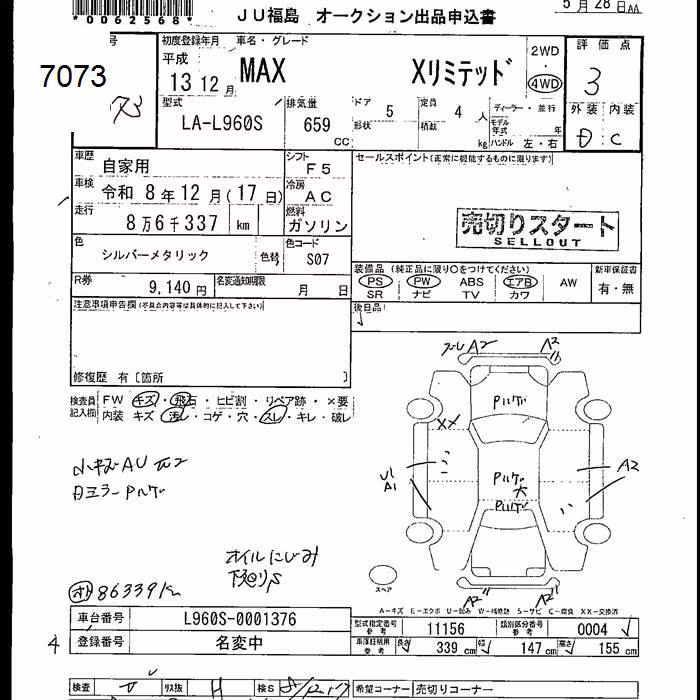 *0062568*
JU福島 オークション出品申込書
5月28日AA
7073
号
初度登録年月 車名・グレード
平成
13 12月
MAX Xリミテッド
2WD
4WD
評価点
3
外装 内装
D C
型式
LA-L960S
排気量
659
CC
ドア
5
形状
定員
4
人
積載
kg
ディーラー・並行
モデル
年式
年
ハンドル 左・右
車歴
自家用
シフト
F5
車検
令和 8年12月(17日)
冷房
AC
走行
8万6千337 km
燃料
ガソリン
色
シルバーメタリック
色替
色コード
S07
R券
9,140円
名変通知期限
月 日
セールスポイント(正常に機能するものに限ります)
売切りスタート
SELLOUT
装備品(純正品に限り○をつけてください)
PS PW ABS エアB AW
SR ナビ TV カワ
新車保証書
有・無
後日品
注意事項申告欄(不具合内容等は具体的に記入して下さい)
修復歴 有〔箇所 〕
検査員
記入欄
FW キズ・飛石・ヒビ割・リペア跡・×要
内装 キズ・汚レ・コゲ・穴・スレ・キレ・破レ
小キズAU
ミラーPルゲ
オイルにじみ
下廻りS
86339km
A2
A2
Pルゲ
XX
U1
A1
A2
Pルゲ
大
Pルゲ
A2
A2
スペア
A-キズ E-エクボ U-凹み W-補修跡 S-サビ C-腐食 XX-交換済
車台番号
L960S-0001376
登録番号
名変中
4
型式指定番号
参考
11156
類別区分番号
参考
0004
車庫証明用
参考
長さ 339cm 幅 147cm 高さ 155cm
検査
リス抜
検S
希望コーナー
売切りコーナー